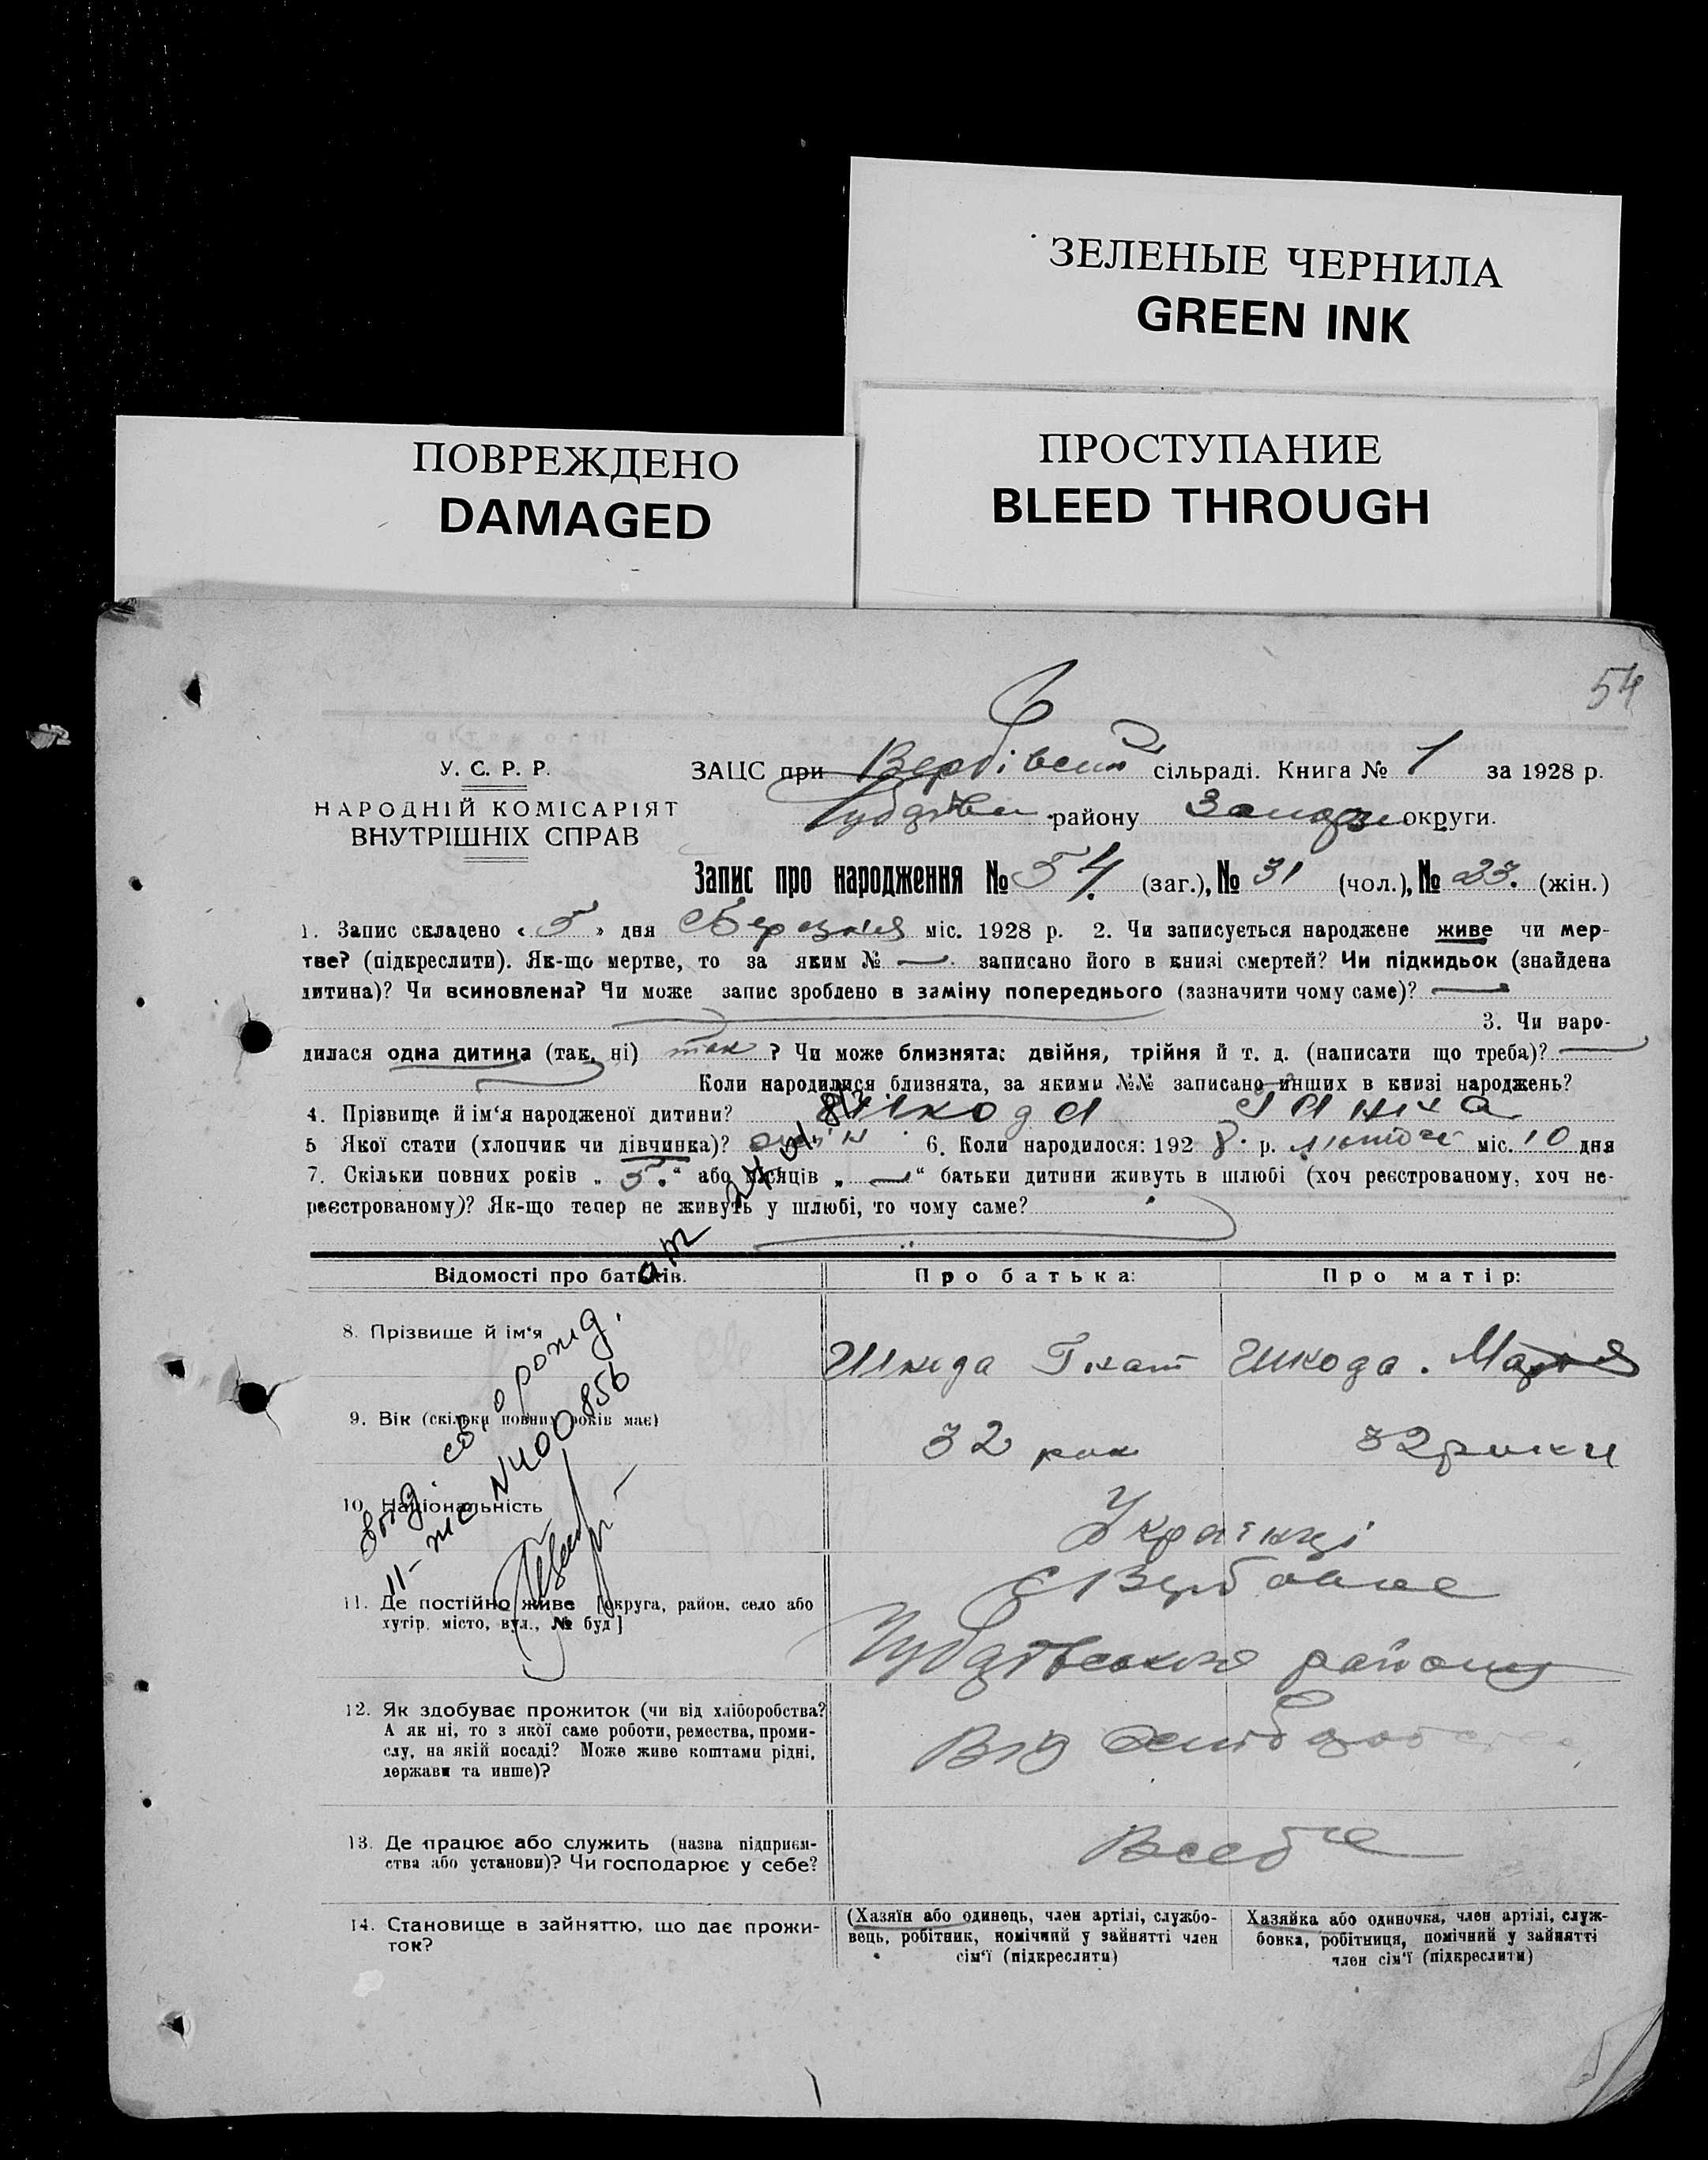 ЗЕЛЕНЫЕ ЧЕРНИЛА
GREEN INK
ПОВРЕЖДЕНО
DAMAGED
ПРОСТУПАНИЕ
BLEED THROUGH
54
У. С. Р. Р.
НАРОДНІЙ КОМІСАРІЯТ
ВНУТРІШНІХ СПРАВ
ЗАЦС при сільраді. Книга № 1 за 1928 р.
району округи.
Запис про народження № 54. (заг.), № 31 (чол.), № 23. (жін.)
1. Запис складено « 5 » дня Березня міс. 1928 р. 2. Чи записується народжене живе чи мер-
тве? (підкреслити). Як-що мертве, то за яким № — записано його в книзі смертей? Чи підкидьок (знайдена
дитина)? Чи всиновлена? Чи може запис зроблено в заміну попереднього (зазначити чому саме)? —
3. Чи наро-
дилася одна дитина (так, ні) так ? Чи може близнята: двійня, трійня й т. д. (написати що треба)? —
Коли народилися близнята, за якими №№ записано инших в книзі народжень?
4. Прізвище й ім‘я народженої дитини? Шкода
5 Якої стати (хлопчик чи дівчинка)? 6. Коли народилося: 192 8. р. міс. 10 дня
7. Скільки повних років „ 5. “ або місяців „ — “ батьки дитини живуть в шлюбі (хоч реєстрованому, хоч не-
реєстрованому)? Як-що тепер не живуть у шлюбі, то чому саме?
Відомості про батьків. Про батька: Про матір:
8. Прізвище й ім‘я Шкода Гнат Шкода. Марія
9. Вік (скільки повних років має) 32 рок 32 роки
10. Національність Українці
11. Де постійно живе [округа, район, село або
хутір, місто, вул., № буд]
району
12. Як здобуває прожиток (чи від хліборобства?
А як ні, то з якої саме роботи, ремества, проми-
слу, на якій посаді? Може живе коштами рідні,
держави та инше)?
Від
13. Де працює або служить (назва підприєм-
ства або установи)? Чи господарює у себе?
В себе
14. Становище в зайняттю, що дає прожи-
ток?
(Хазяїн або одинець, член артілі, службо-
вець, робітник, помічний у зайнятті член
сім‘ї (підкреслити)
Хазяйка або одиночка, член артілі, служ-
бовка, робітниця, помічний у зайнятті
член сім‘ї (підкреслити)